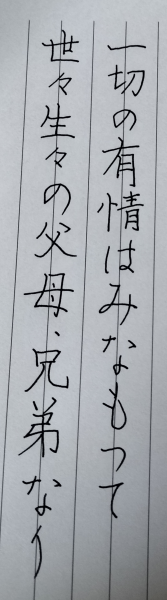 一切の有情はみなもつて
世々生々の父母、兄弟なり